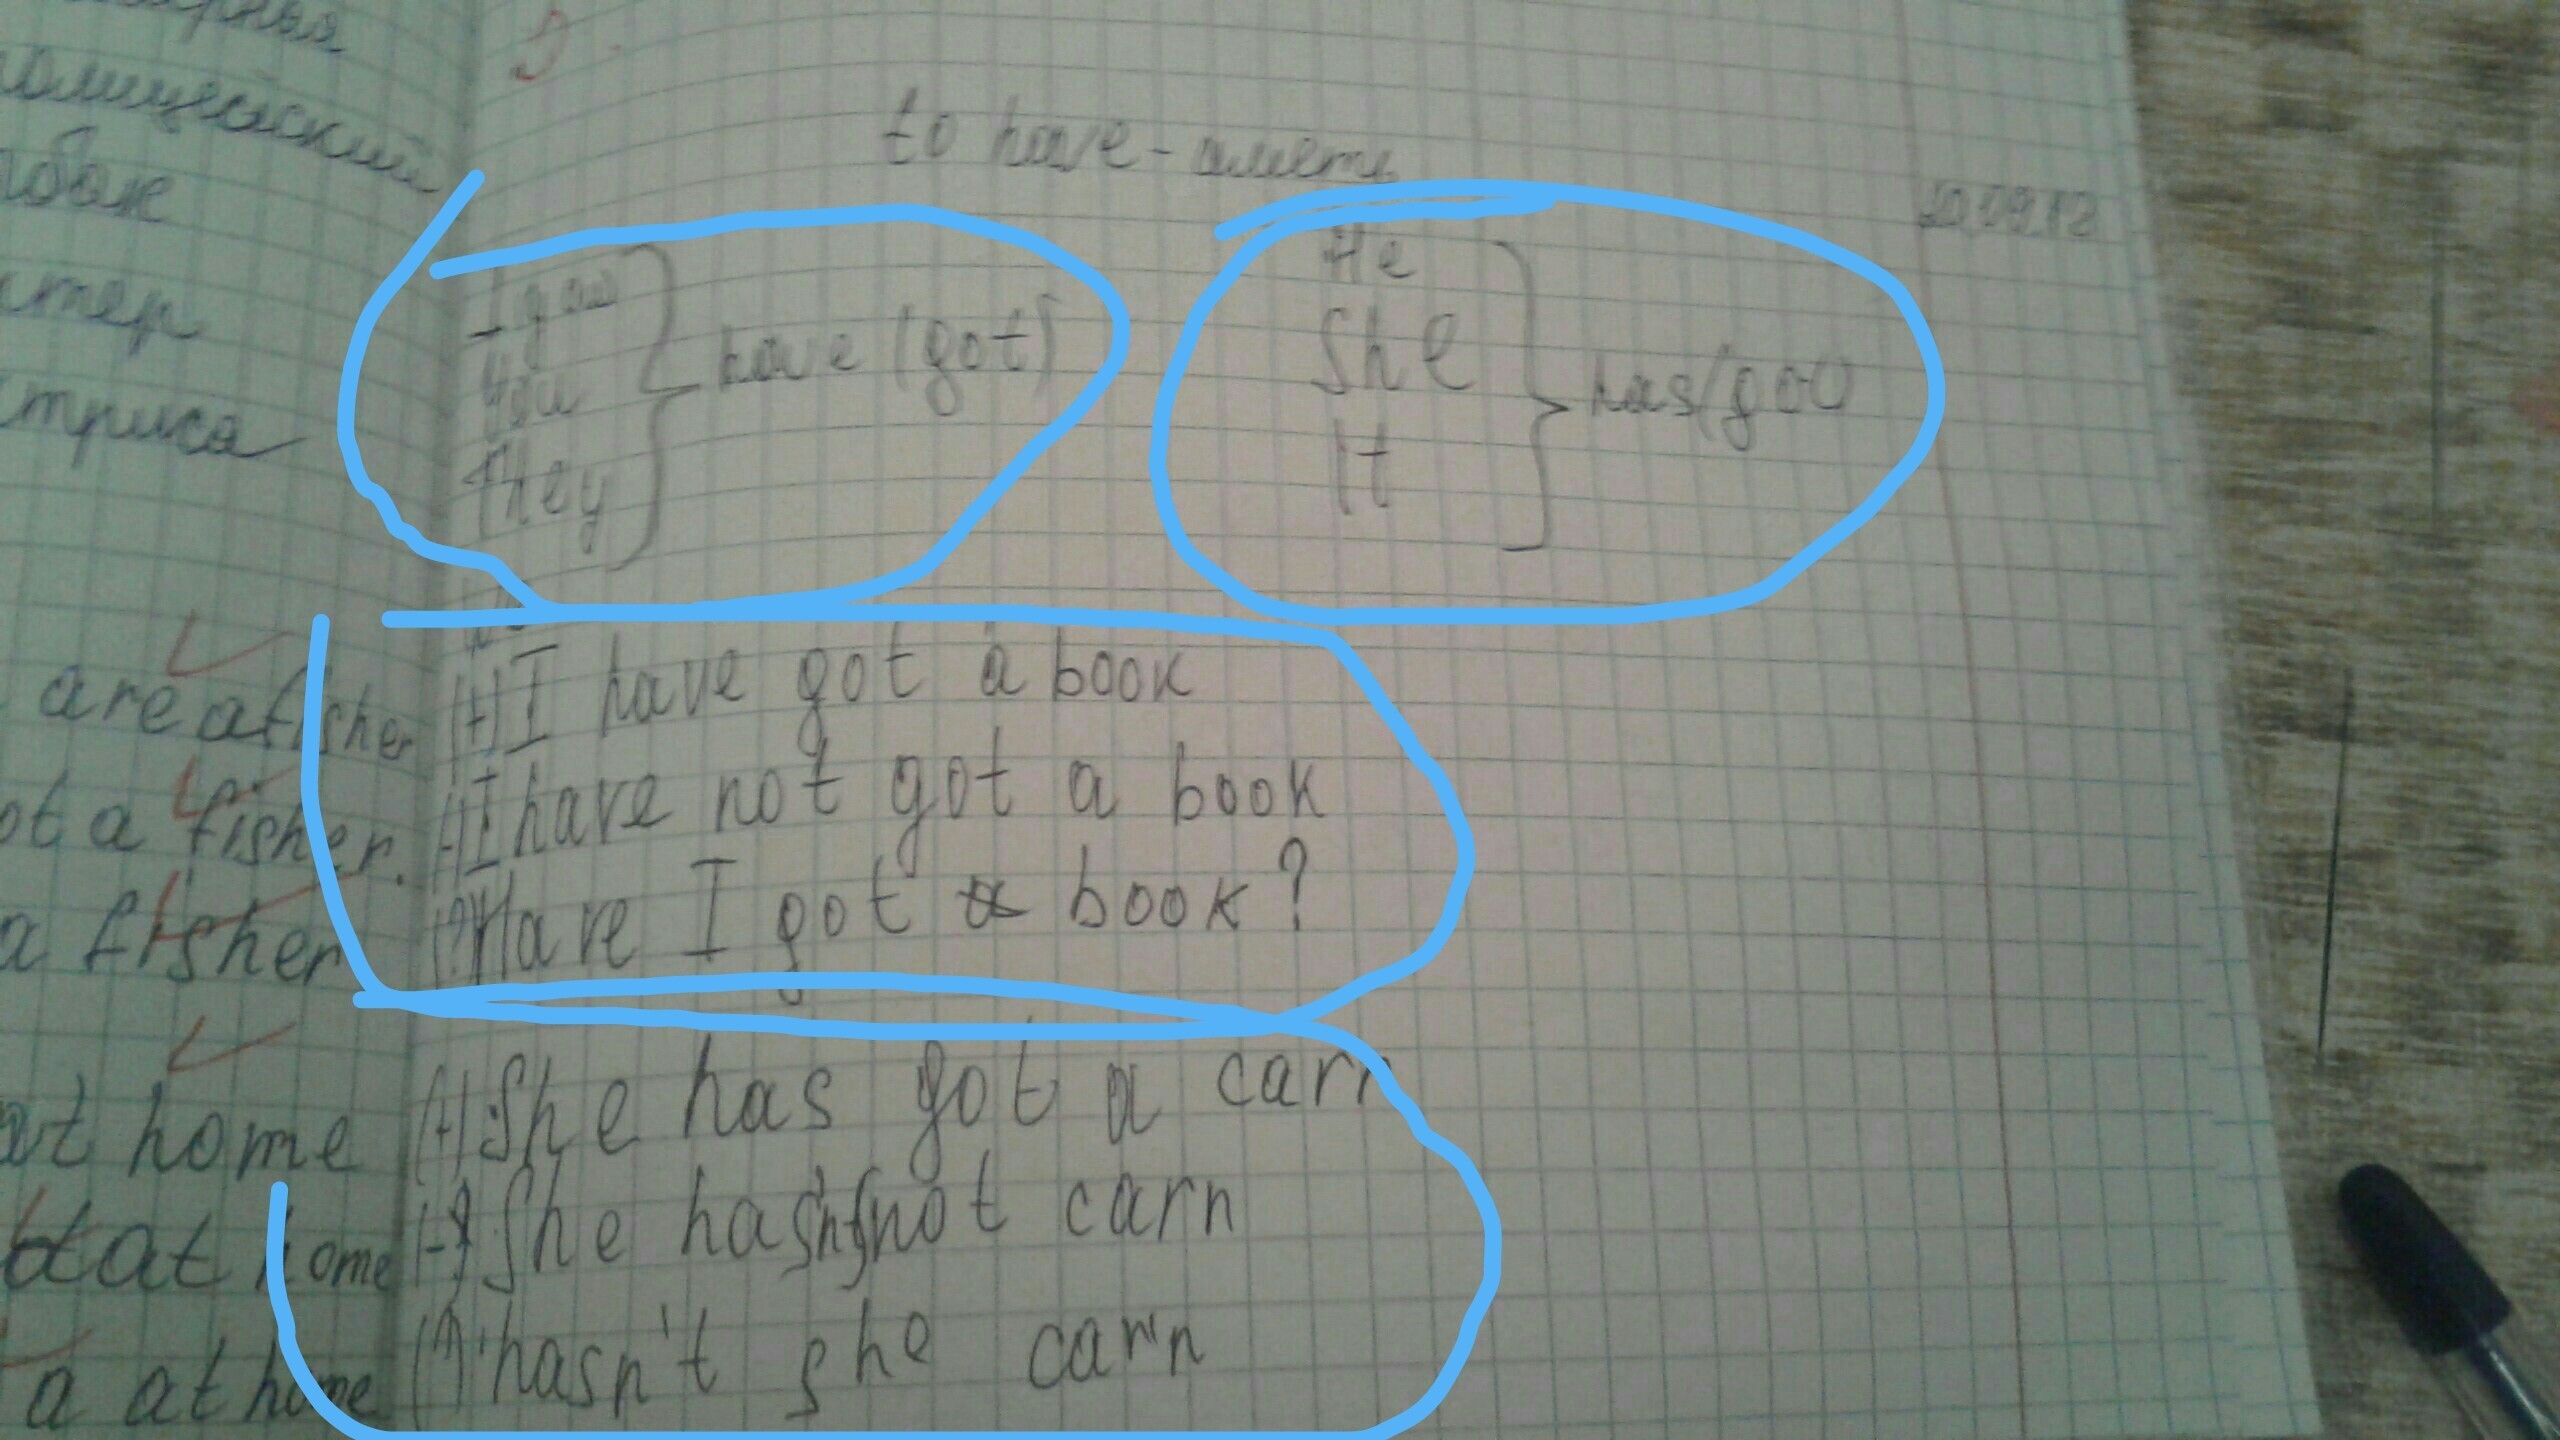 рная
полицейский
тер
триса
are a fisher
ot a fisher.
a fisher
at home
at home
a at home
5
to have - иметь
20.09.12
I
You
They
have (got)
He
She
It
has (got)
(+) I have got a book
(-) I have not got a book
(?) Have I got a book?
(+) She has got a carn
(-) She not carn
(?) hasn't she carn